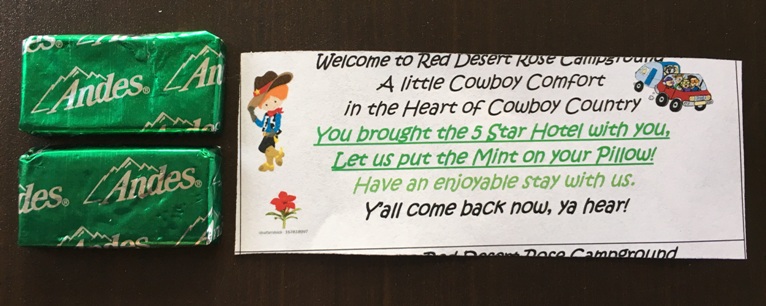 es.
Andes
An
des.
Andes.
Welcome to Red Desert Rose Campground
A little Cowboy Comfort
in the Heart of Cowboy Country
You brought the 5 Star Hotel with you,
Let us put the Mint on your Pillow!
Have an enjoyable stay with us.
Y'all come back now, ya hear!
Red Desert Rose Campground